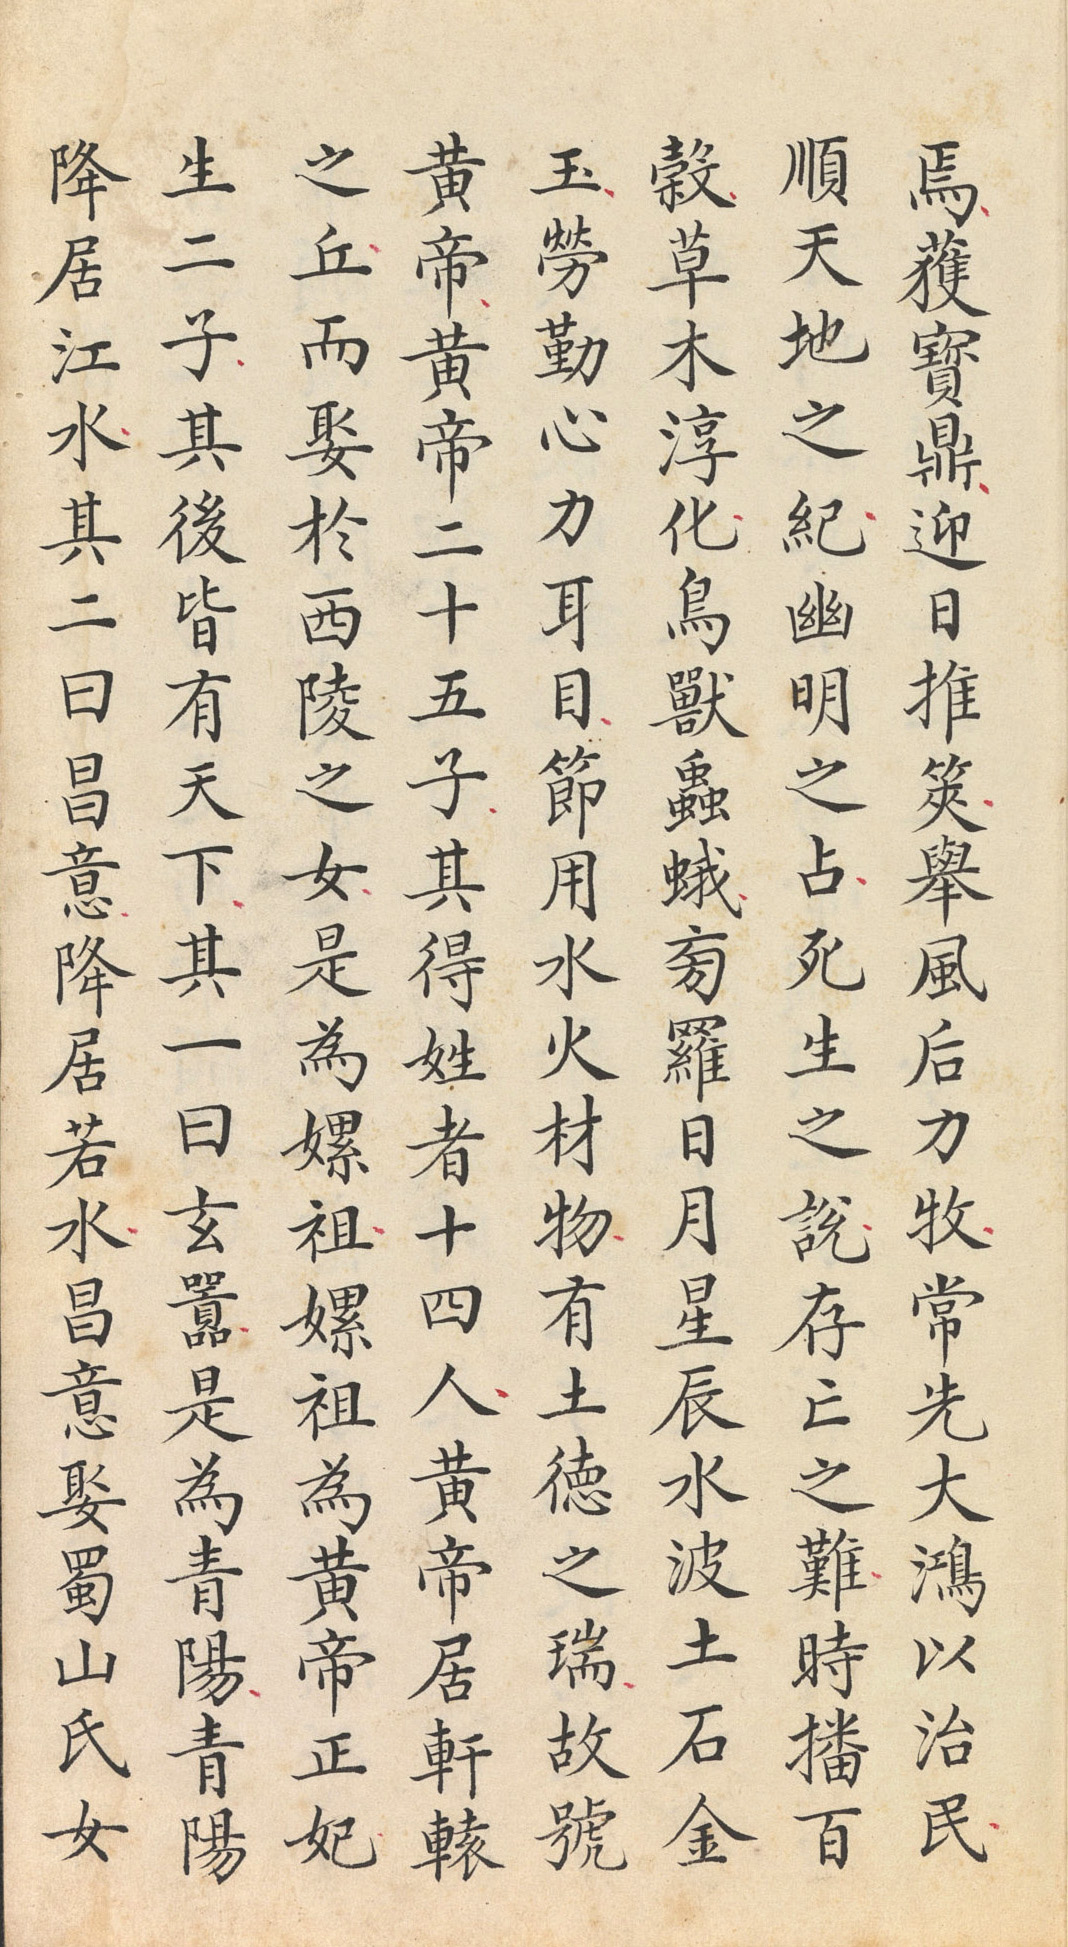 焉獲寶鼎迎日推筴舉風后力牧常先大鴻以治民
順天地之紀幽明之占死生之說存亡之難時播百
穀草木淳化鳥獸蟲蛾旁羅日月星辰水波土石金
玉勞勤心力耳目節用水火材物有土德之瑞故號
黃帝黃帝二十五子其得姓者十四人黃帝居軒轅
之丘而娶於西陵之女是為嫘祖嫘祖為黃帝正妃
生二子其後皆有天下其一曰玄囂是為青陽青陽
降居江水其二曰昌意降居若水昌意娶蜀山氏女